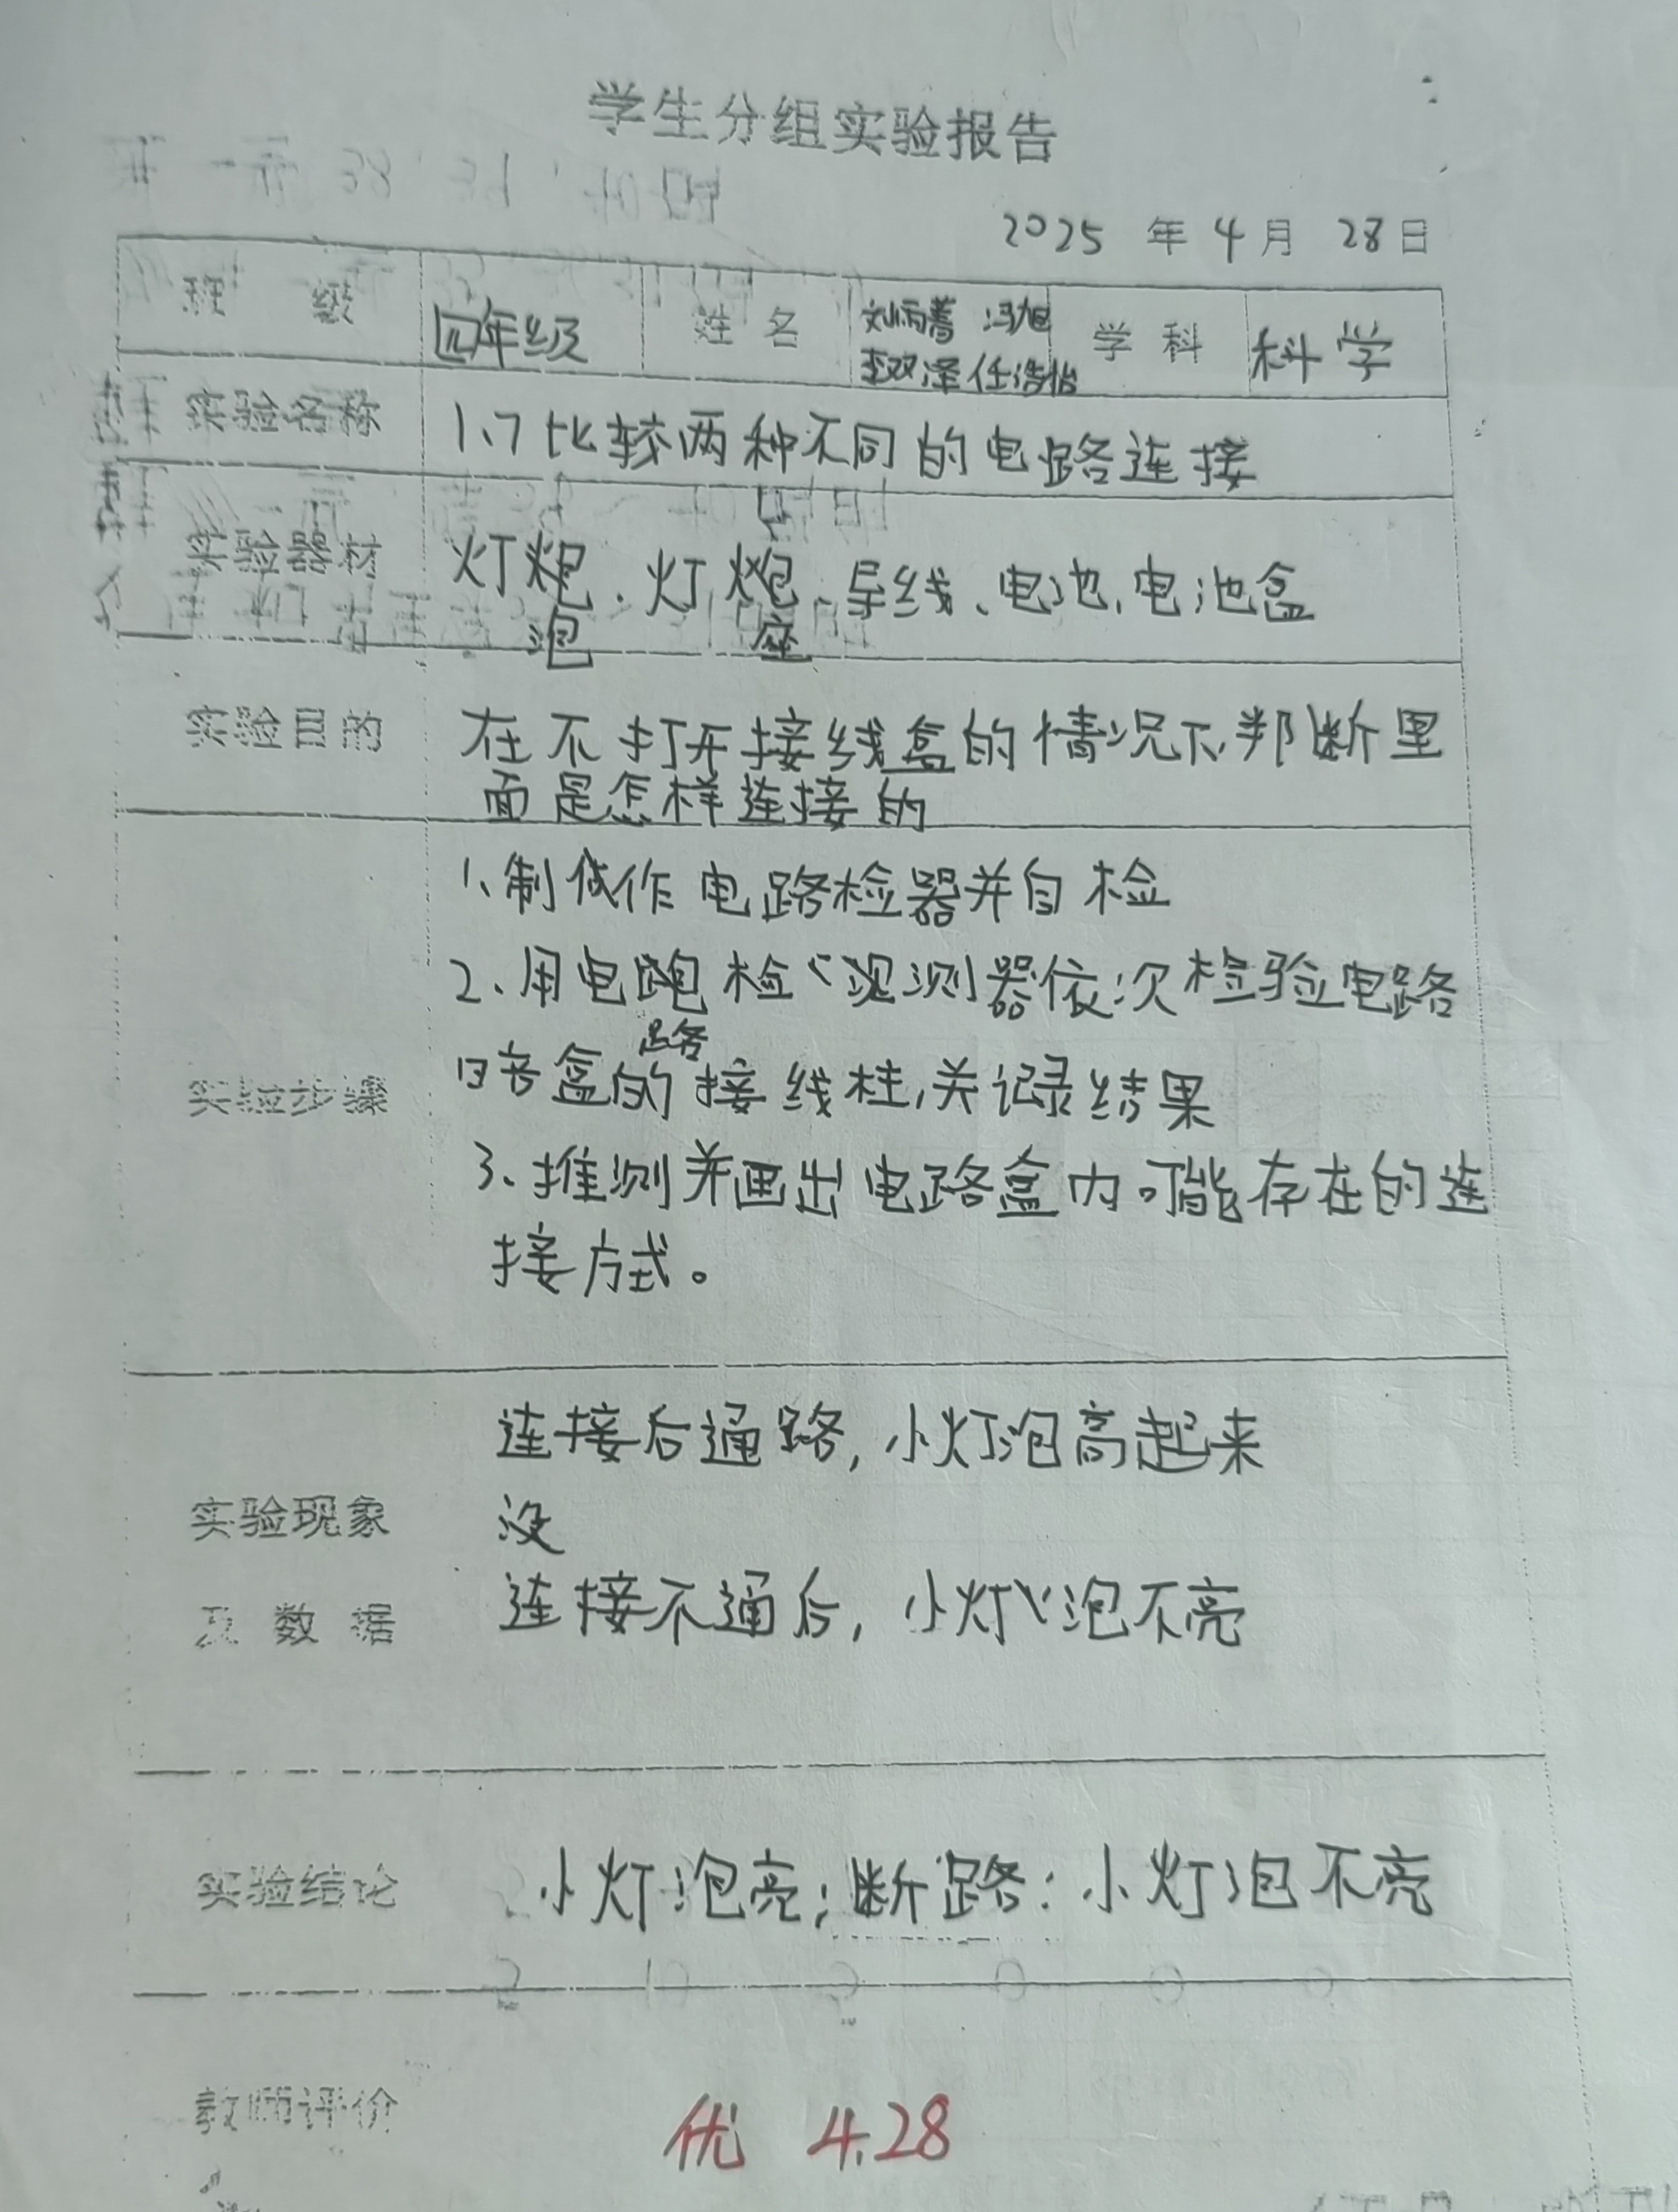 学生分组实验报告
2025 年 4 月 28 日
班 级 四年级 姓 名 冯旭 任浩怡 学 科 科学
实验名称 1.7 比较两种不同的电路连接
实验器材 灯炮、灯炮、导线、电池、电池盒
泡 座
实验目的 在不打开接线盒的情况下,判断里
面是怎样连接的
实验步骤
1、制作电路检器并自检
2、用电 检 测器依次检验电路
路
暗盒的接线柱,并记录结果
3、推测并画出电路盒内可能存在的连
接方式。
实验现象
及 数 据
连接后通路,小灯泡高起来
没
连接不通后,小灯泡不亮
实验结论 小灯泡亮;断路:小灯泡不亮
教师评价 优 4.28